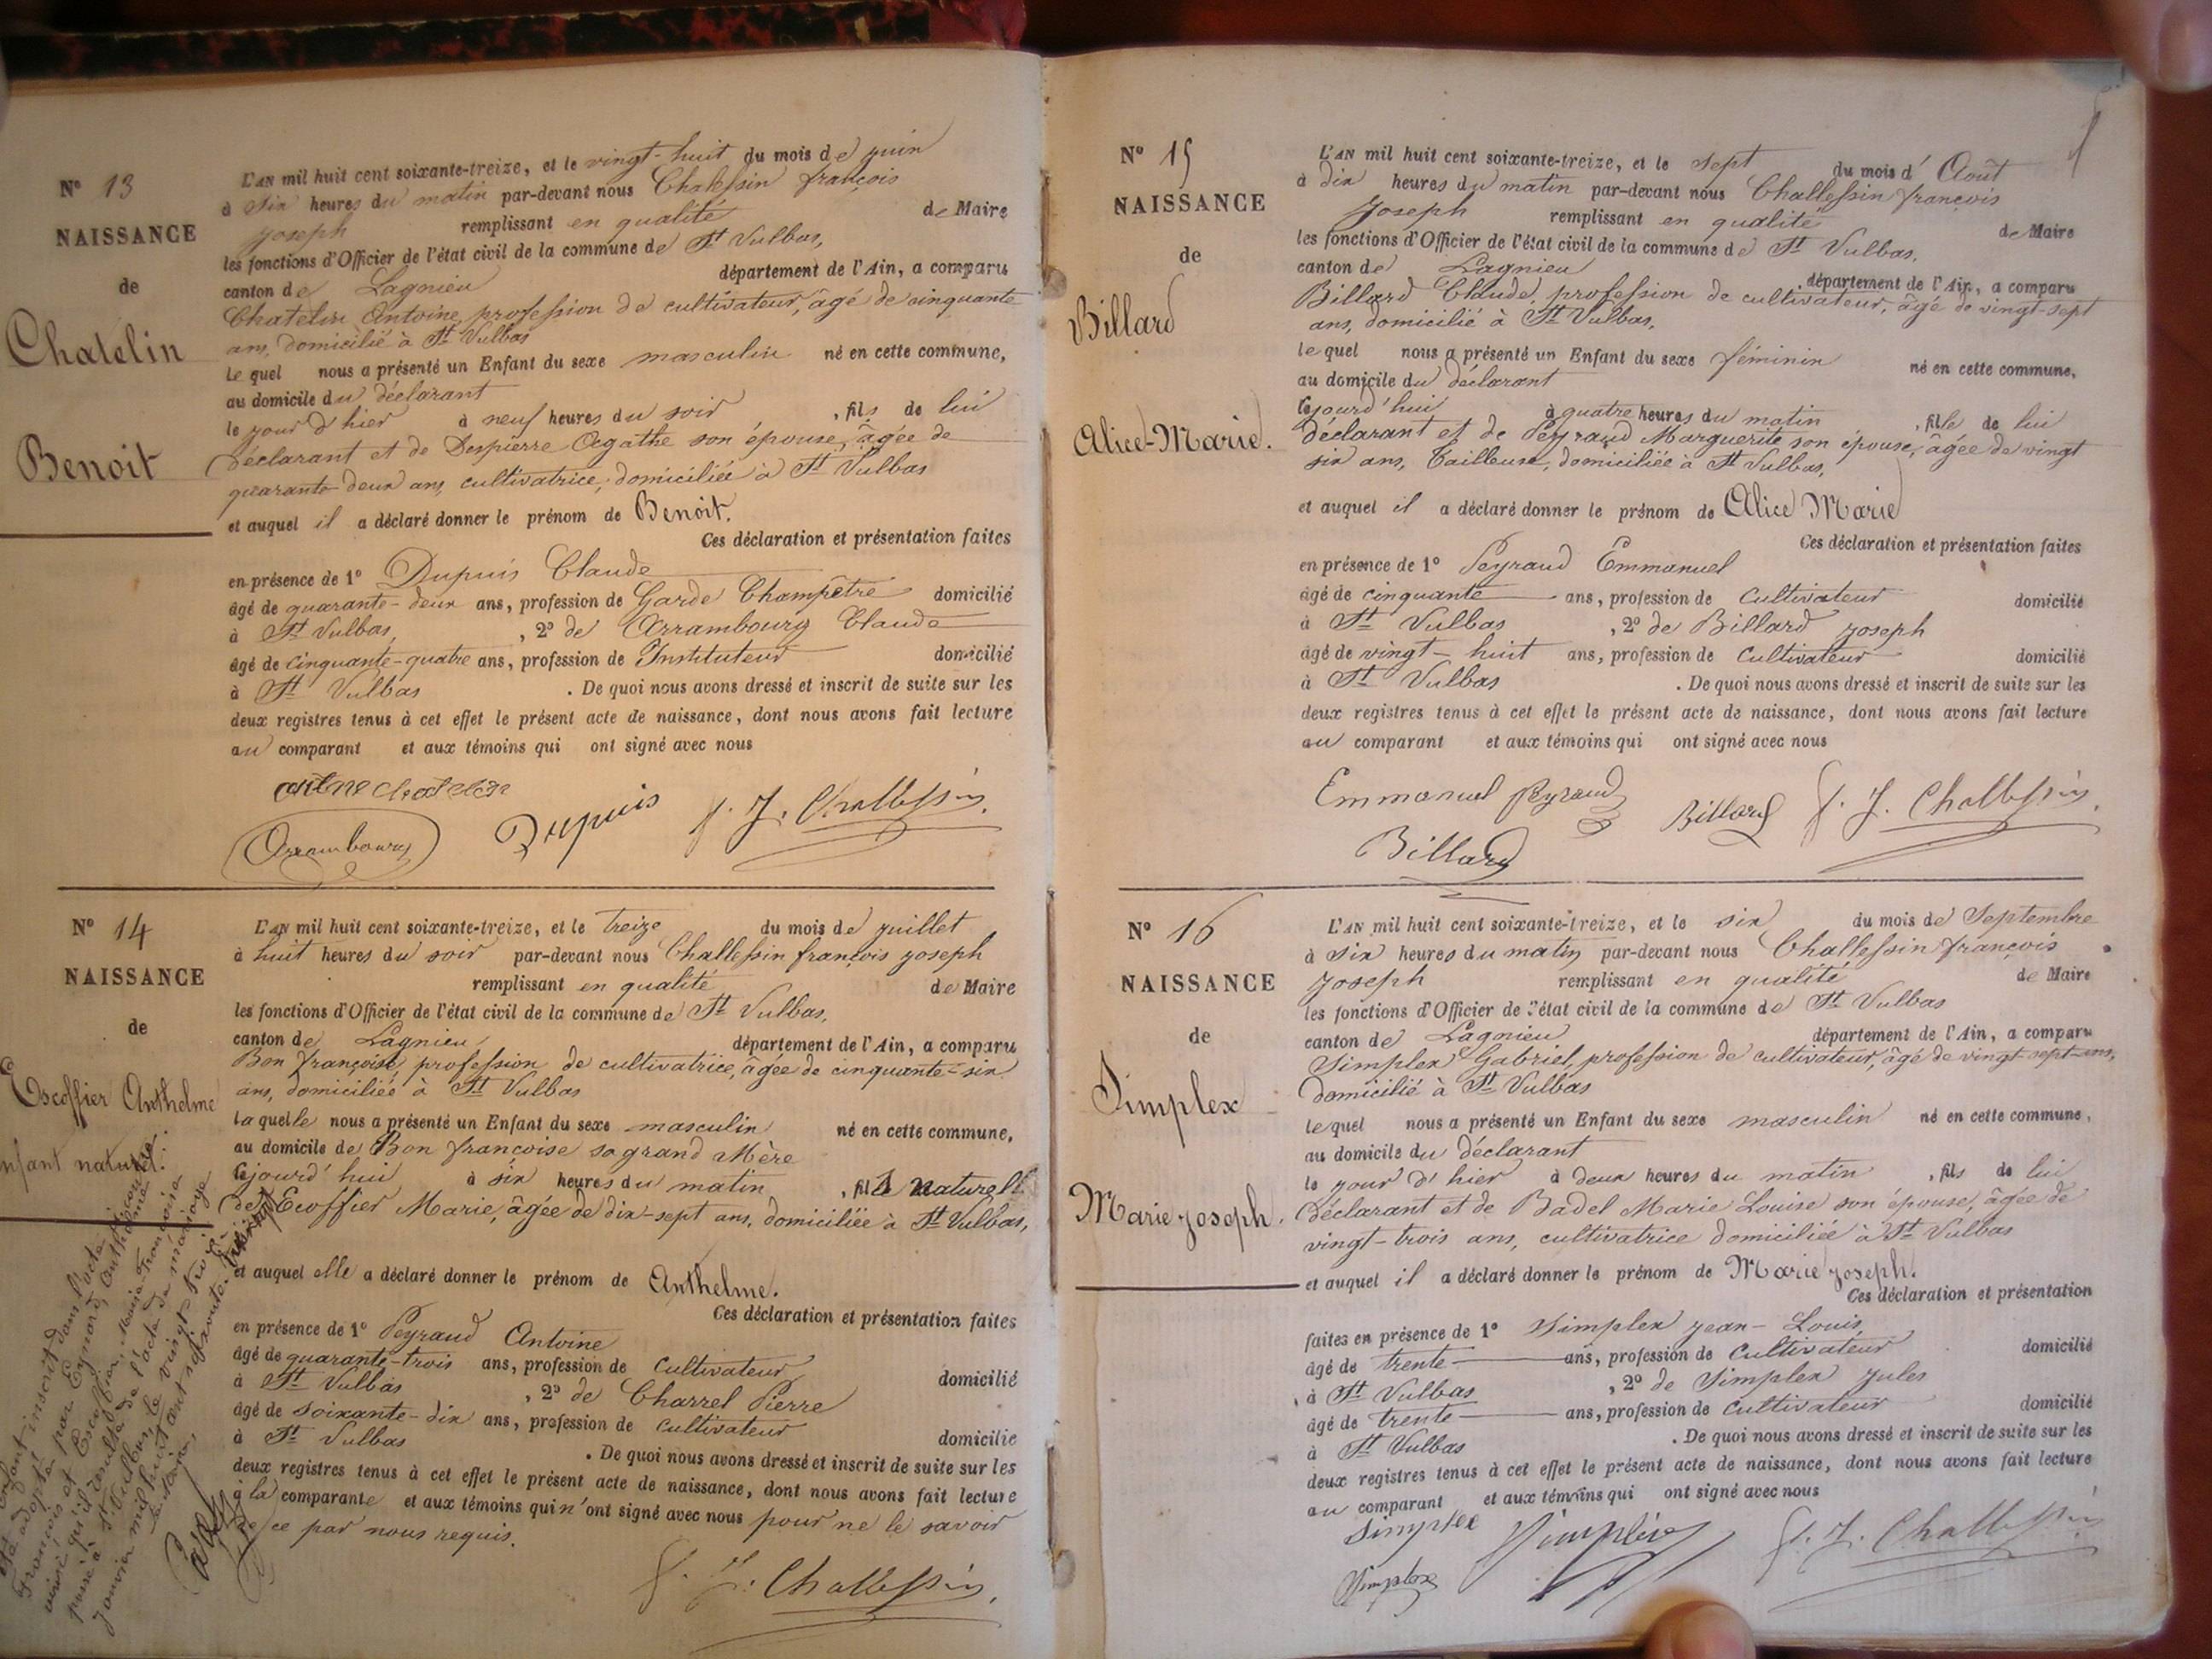 N° 13
NAISSANCE
de
Chatelin
Benoit
L'AN mil huit cent soixante-treize, et le vingt-huit du mois de juin
à six heures du matin par-devant nous Challessin françois
joseph remplissant en qualité de Maire
les fonctions d'Officier de l'état civil de la commune de St Vulbas,
canton de Lagnieu département de l'Ain, a comparu
Chatelin Antoine, profession de cultivateur, âgé de cinquante
ans, domicilié à St Vulbas
le quel nous a présenté un Enfant du sexe masculin né en cette commune,
au domicile du déclarant
le jour d'hier à neuf heures du soir, fils de lui
déclarant et de Despierre Agathe son épouse, âgée de
quarante-deux ans, cultivatrice, domiciliée à St Vulbas
et auquel il a déclaré donner le prénom de Benoit.
Ces déclaration et présentation faites
en présence de 1° Dupuis Claude
âgé de quarante-deux ans, profession de Garde Champêtre domicilié
à St Vulbas, 2° de Arrambourg Claude
âgé de cinquante-quatre ans, profession de Instituteur domicilié
à St Vulbas. De quoi nous avons dressé et inscrit de suite sur les
deux registres tenus à cet effet le présent acte de naissance, dont nous avons fait lecture
au comparant et aux témoins qui ont signé avec nous
Dupuis f. J. Challessin
Arrambourg
N° 14
NAISSANCE
de
Escoffier Anthelme
nfant naturel.
L'AN mil huit cent soixante-treize, et le treize du mois de juillet
à huit heures du soir par-devant nous Challessin françois joseph
remplissant en qualité de Maire
les fonctions d'Officier de l'état civil de la commune de St Vulbas,
canton de Lagnieu, département de l'Ain, a comparu
Bon françoise, profession de cultivatrice, âgée de cinquante-six
ans, domiciliée à St Vulbas
laquelle nous a présenté un Enfant du sexe masculin né en cette commune,
au domicile de Bon françoise sa grand Mère
Cejourd'hui à six heures du matin, fils naturel
de Ecoffier Marie, âgée de dix-sept ans, domiciliée à St Vulbas,
et auquel elle a déclaré donner le prénom de Anthelme.
Ces déclaration et présentation faites
en présence de 1° Peyraud Antoine
âgé de quarante-trois ans, profession de Cultivateur domicilié
à St Vulbas, 2° de Charrel Pierre
âgé de soixante-dix ans, profession de Cultivateur domicilié
à St Vulbas. De quoi nous avons dressé et inscrit de suite sur les
deux registres tenus à cet effet le présent acte de naissance, dont nous avons fait lecture
à la comparante et aux témoins qui n'ont signé avec nous pour ne le savoir
de ce par nous requis.
f. J. Challessin
enfant inscrit dans l'acte
été adopté par Eynard, Anthelme
François et Escoffier, Marie-Françoise
ainsi qu'il résulte de l'acte de mariage
passé à St Vulbas, le vingt-trois
janvier mil huit cent soixante
Le Maire,
N° 15
NAISSANCE
de
Billard
Alice-Marie.
L'AN mil huit cent soixante-treize, et le sept du mois d'Août
à dix heures du matin par-devant nous Challessin françois
Joseph remplissant en qualité de Maire
les fonctions d'Officier de l'état civil de la commune de St Vulbas,
canton de Lagnieu département de l'Ain, a comparu
Billard Claude, profession de cultivateur, âgé de vingt-sept
ans, domicilié à St Vulbas,
lequel nous a présenté un Enfant du sexe féminin né en cette commune,
au domicile du déclarant
Cejourd'hui à quatre heures du matin, fille de lui
déclarant et de Peyraud Marguerite son épouse, âgée de vingt
six ans, Tailleuse, domiciliée à St Vulbas,
et auquel il a déclaré donner le prénom de Alice Marie
Ces déclaration et présentation faites
en présence de 1° Peyraud Emmanuel
âgé de cinquante ans, profession de Cultivateur domicilié
à St Vulbas, 2° de Billard joseph
âgé de vingt-huit ans, profession de Cultivateur domicilié
à St Vulbas. De quoi nous avons dressé et inscrit de suite sur les
deux registres tenus à cet effet le présent acte de naissance, dont nous avons fait lecture
au comparant et aux témoins qui ont signé avec nous
Emmanuel Peyraud Billard f. J. Challessin
Billard
N° 16
NAISSANCE
de
Simplex
Marie joseph.
L'AN mil huit cent soixante-treize, et le six du mois de Septembre
à six heures du matin par-devant nous Challessin françois
joseph remplissant en qualité de Maire
les fonctions d'Officier de l'état civil de la commune de St Vulbas
canton de Lagnieu département de l'Ain, a comparu
Simplex Gabriel, profession de cultivateur, âgé de vingt-sept ans,
domicilié à St Vulbas
lequel nous a présenté un Enfant du sexe masculin né en cette commune,
au domicile du déclarant
le jour d'hier à deux heures du matin, fils de lui
déclarant et de Badel Marie Louise son épouse, âgée de
vingt-trois ans, cultivatrice domiciliée à St Vulbas
et auquel il a déclaré donner le prénom de Marie joseph.
Ces déclaration et présentation
faites en présence de 1° Simplex jean-Louis
âgé de trente ans, profession de Cultivateur domicilié
à St Vulbas, 2° de Simplex jules
âgé de trente ans, profession de cultivateur domicilié
à St Vulbas. De quoi nous avons dressé et inscrit de suite sur les
deux registres tenus à cet effet le présent acte de naissance, dont nous avons fait lecture
au comparant et aux témoins qui ont signé avec nous
Simplex Simplex f. J. Challessin
Simplex